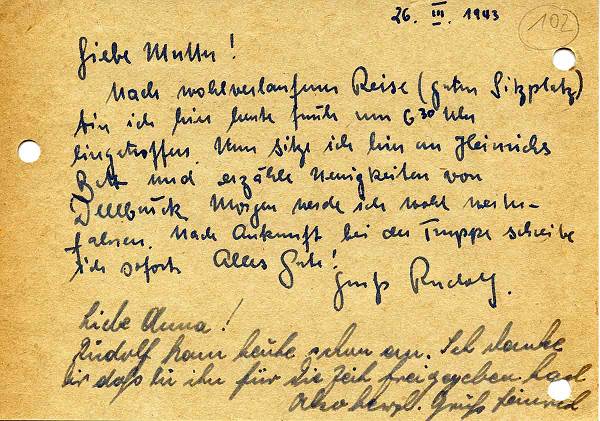 26. III. 1943
102
Liebe Mutter!
Nach wohlverlaufener Reise (guten Sitzplatz)
bin ich hier heute früh um 6 30 Uhr
eingetroffen. Nun sitze ich hier an Heinrichs
Bett und erzähle Neuigkeiten von
Dellbrück. Morgen werde ich wohl weiter-
fahren. Nach Ankunft bei der Truppe schreibe
ich sofort. Alles Gute!
Gruß Rudolf.
Liebe Anna!
Rudolf kam heute schon an. Ich danke
dir daß du ihn für die Zeit freigegeben hast
Also herzl. Gruß Heinrich